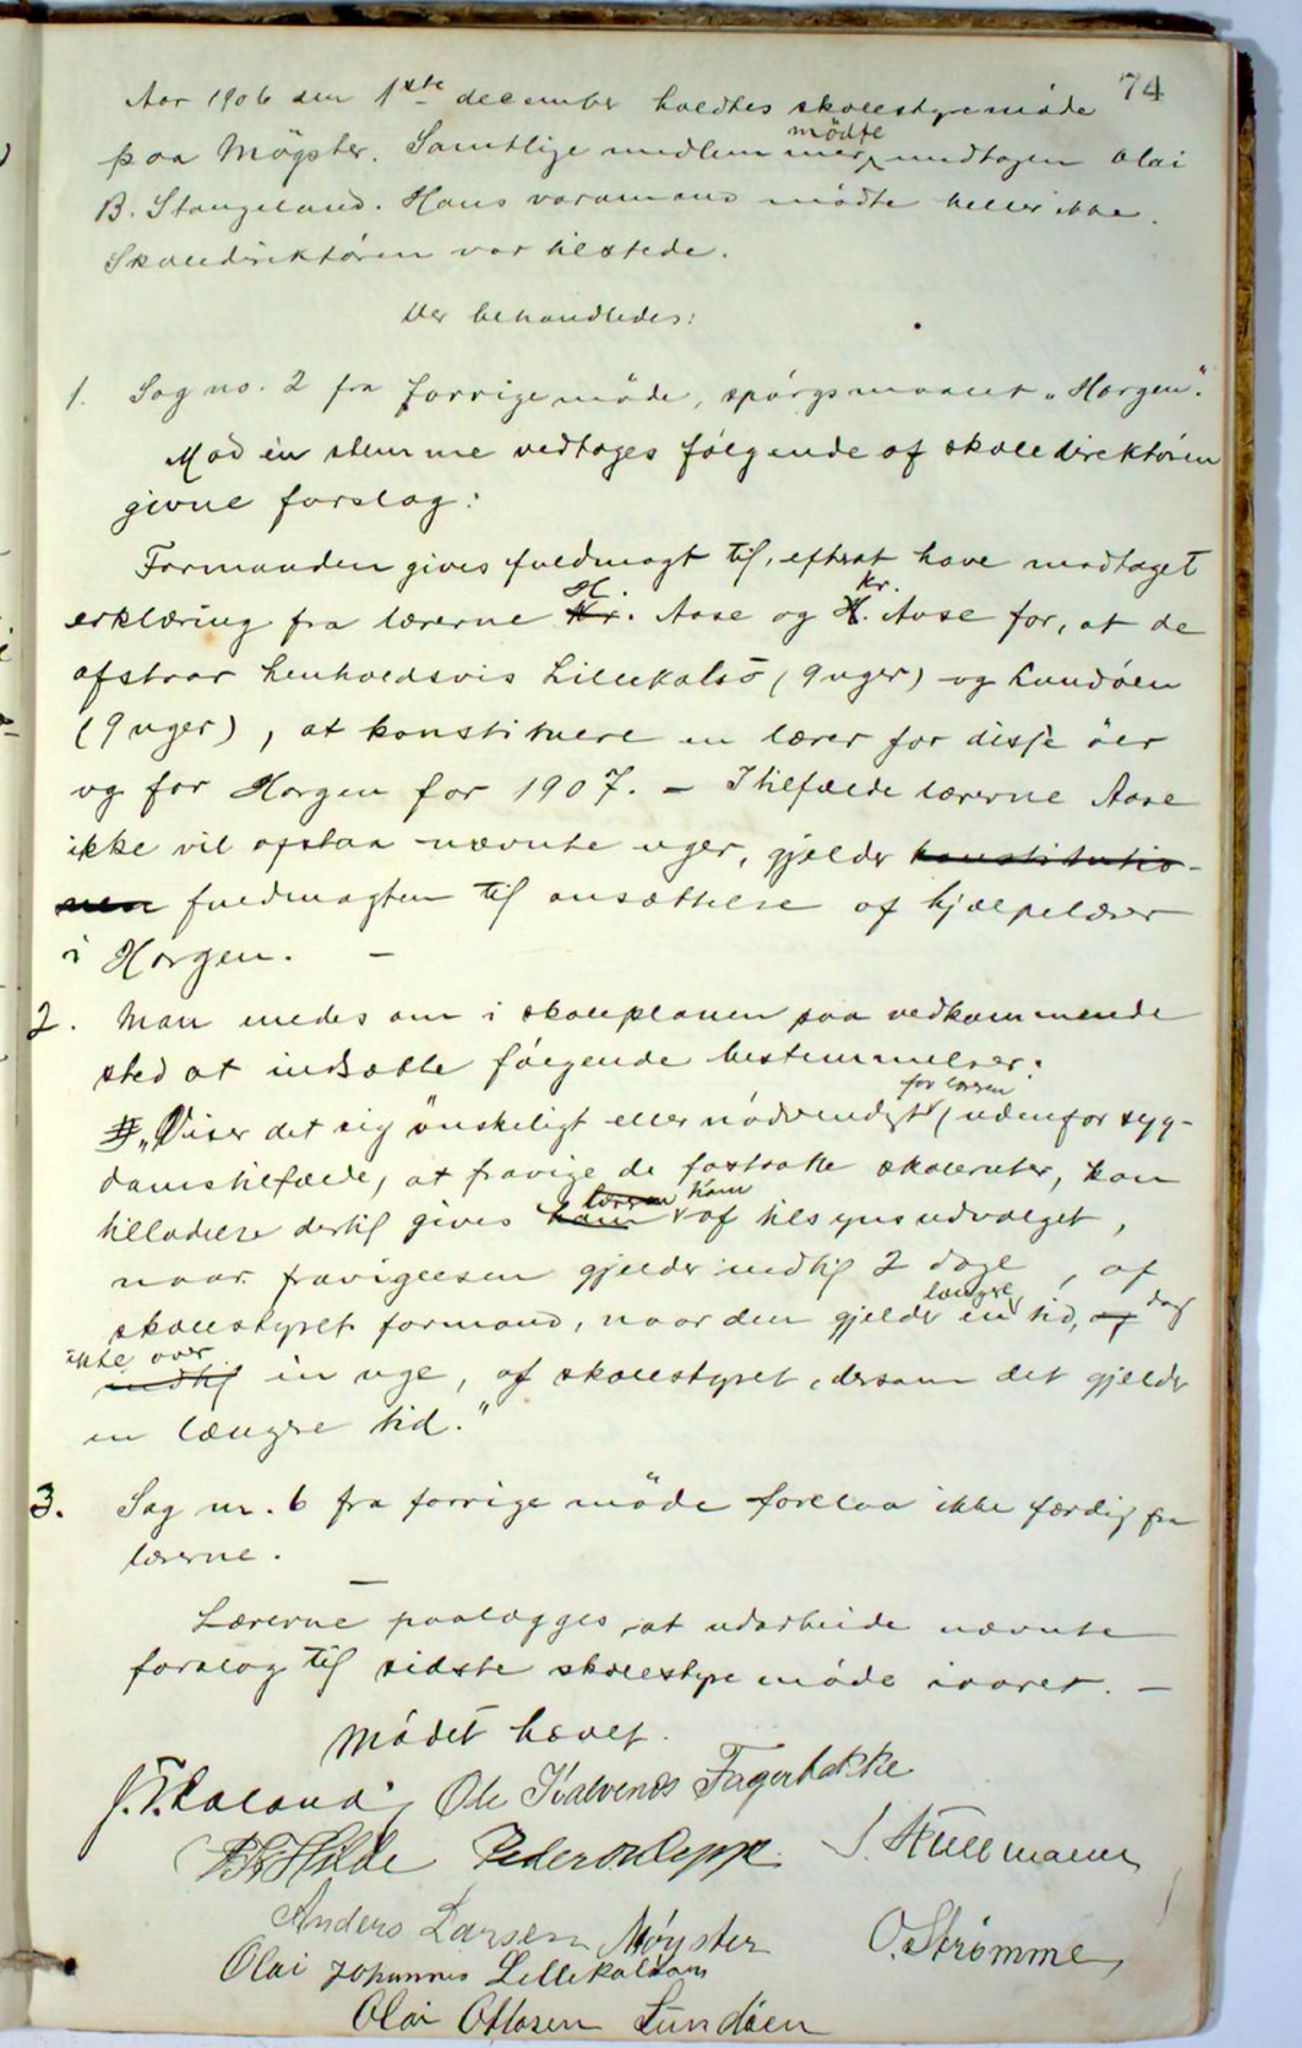 74
Aar 1906 den 1ste december holdtes skolestyremöde
paa Mögster. Samtlige medlemmer mödte undtagen Olai
B. Stangeland. Hans varamand mödte heller ikke.
Skoledirektören var tilstede.
Der behandledes:
1. Sag no. 2 fra forrige möde, spörgsmaalet „Horgen".
Mod en stemme vedtages fölgende af skoledirektören
givne forslag:
Formanden gives fuldmagt til, efterat have modtaget
erklæring fra lærerne Kr. H. Aase og H. Kr. Aase for, at de
afstaar henholdsvis Lillekalsö (9 uger) og Lundöen
(9 uger), at konstituere en lærer for disse öer
og for Horgen for 1907. – I tilfælde lærerne Aase
ikke vil afstaa nævnte uger, gjelder konstitutio-
nen fuldmagten til ansættelse af hjælpelærer
i Horgen. –
2. Man enedes om i skoleplanen paa vedkommende
sted at indsætte fölgende bestemmelser:
„Viser det sig önskeligt eller nödvendigt for læreren (udenfor syg-
domstilfælde) at fravige de fastsatte skoleruter, kan
tilladelse dertil gives ham læreren ham af tilsynsudvalget,
naar fravigelsen gjelder indtil 2 dage, af
skolestyrets formand, naar den gjelder en længere tid, af dog
indtil ikke over en uge, af skolestyret, dersom det gjelder
en længere tid."
3. Sag nr. 6 fra forrige möde forelaa ikke færdig fra
lærerne. –
Lærerne paalægges at udarbeide nævnte
forslag til sidste skolestyremöde iaaret. –
Mödet hævet.
Ole Kalvenes Fagerbakke
Hilde Peder O. Kleppe J. Stüllmann
Anders Larsen Möyster O. Strømme
Olai Johannes Lillekalsøen
Olai Ottosen Lundöen